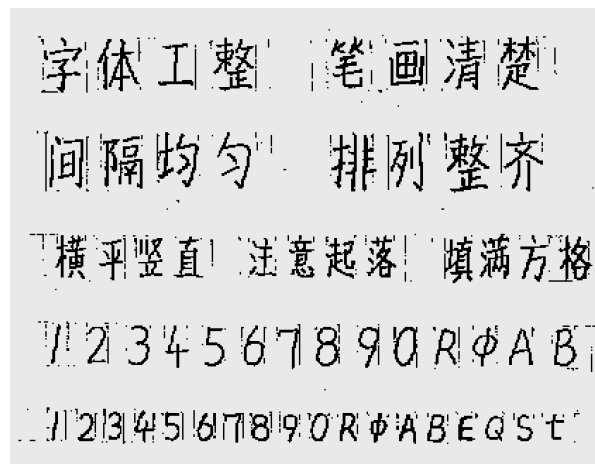 字体工整 笔画清楚
间隔均匀 排列整齐
横平竖直 注意起落 填满方格
1234567890RΦAB
1234567890RΦABEQSt